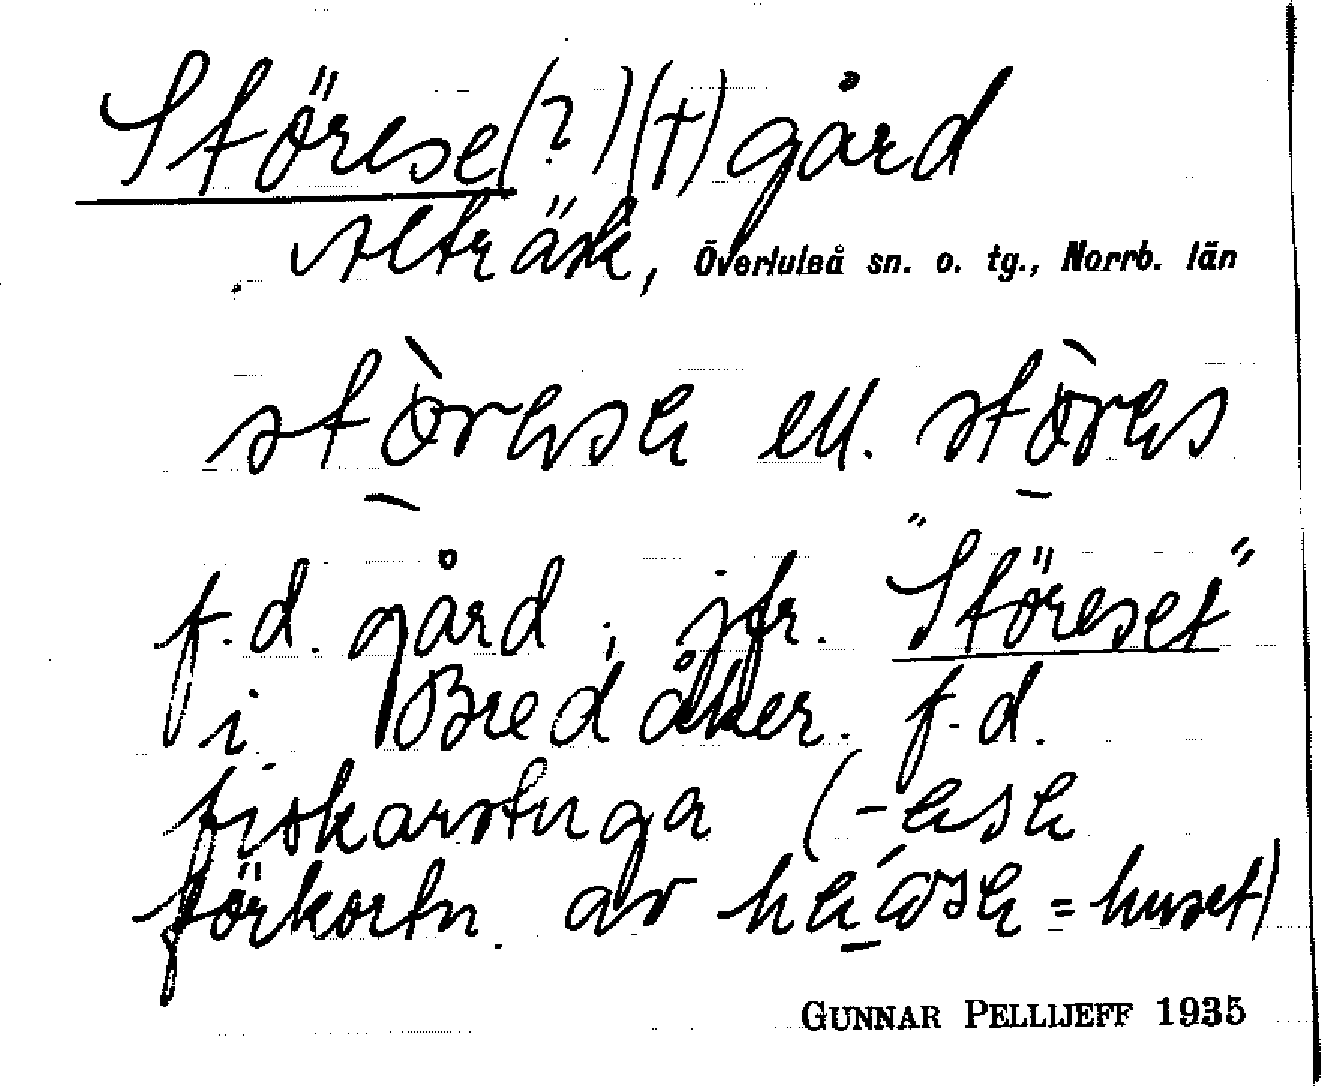 Störese(?)(†) gård
Alträsk, Överluleå sn. o. tg., Norrb. län
stòrəsə ell. stòrəs
f.d. gård; jfr. "Störeset"
i Bredåker. f.d.
fiskarstuga (-əsə
förkortn. av həωsə = huset)
GUNNAR PELLIJEFF 1935